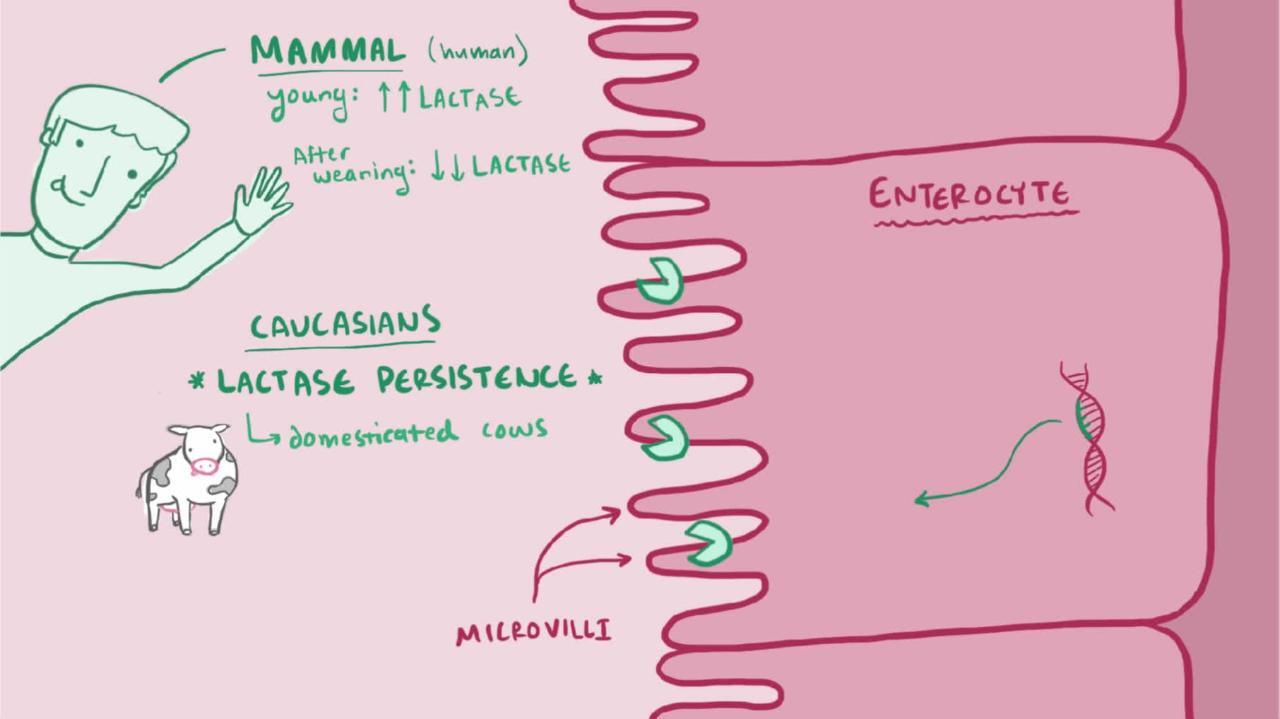 MAMMAL (human)
young: ↑↑ LACTASE
After
weaning: ↓↓ LACTASE
ENTEROCYTE
CAUCASIANS
* LACTASE PERSISTENCE *
↳ domesticated cows
MICROVILLI